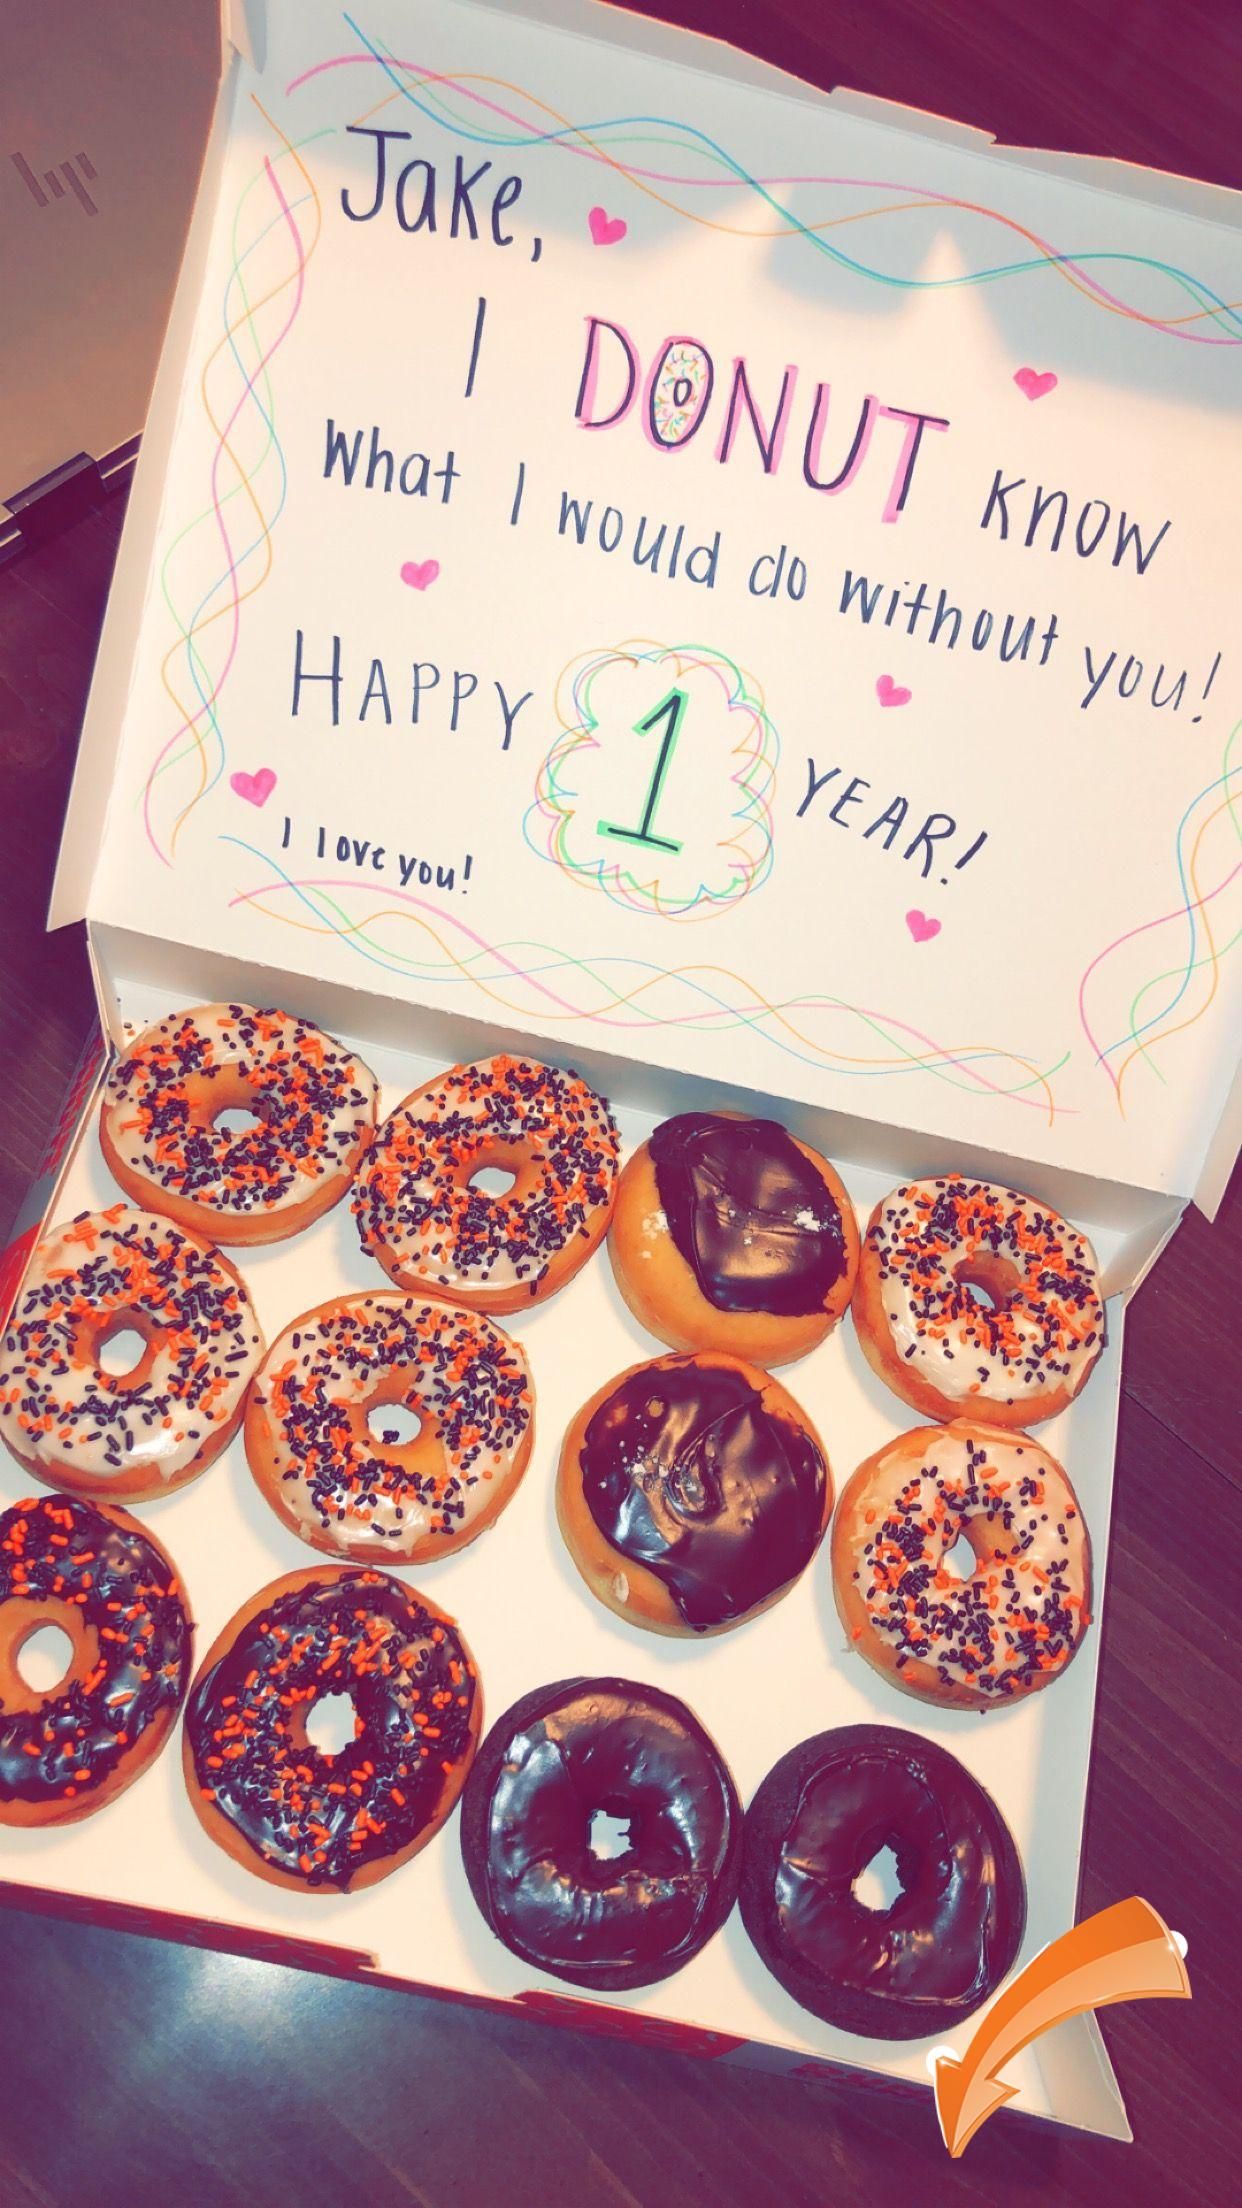 hp
Jake,
I DONUT know
What I would do without you!
HAPPY 1 YEAR!
I love you!